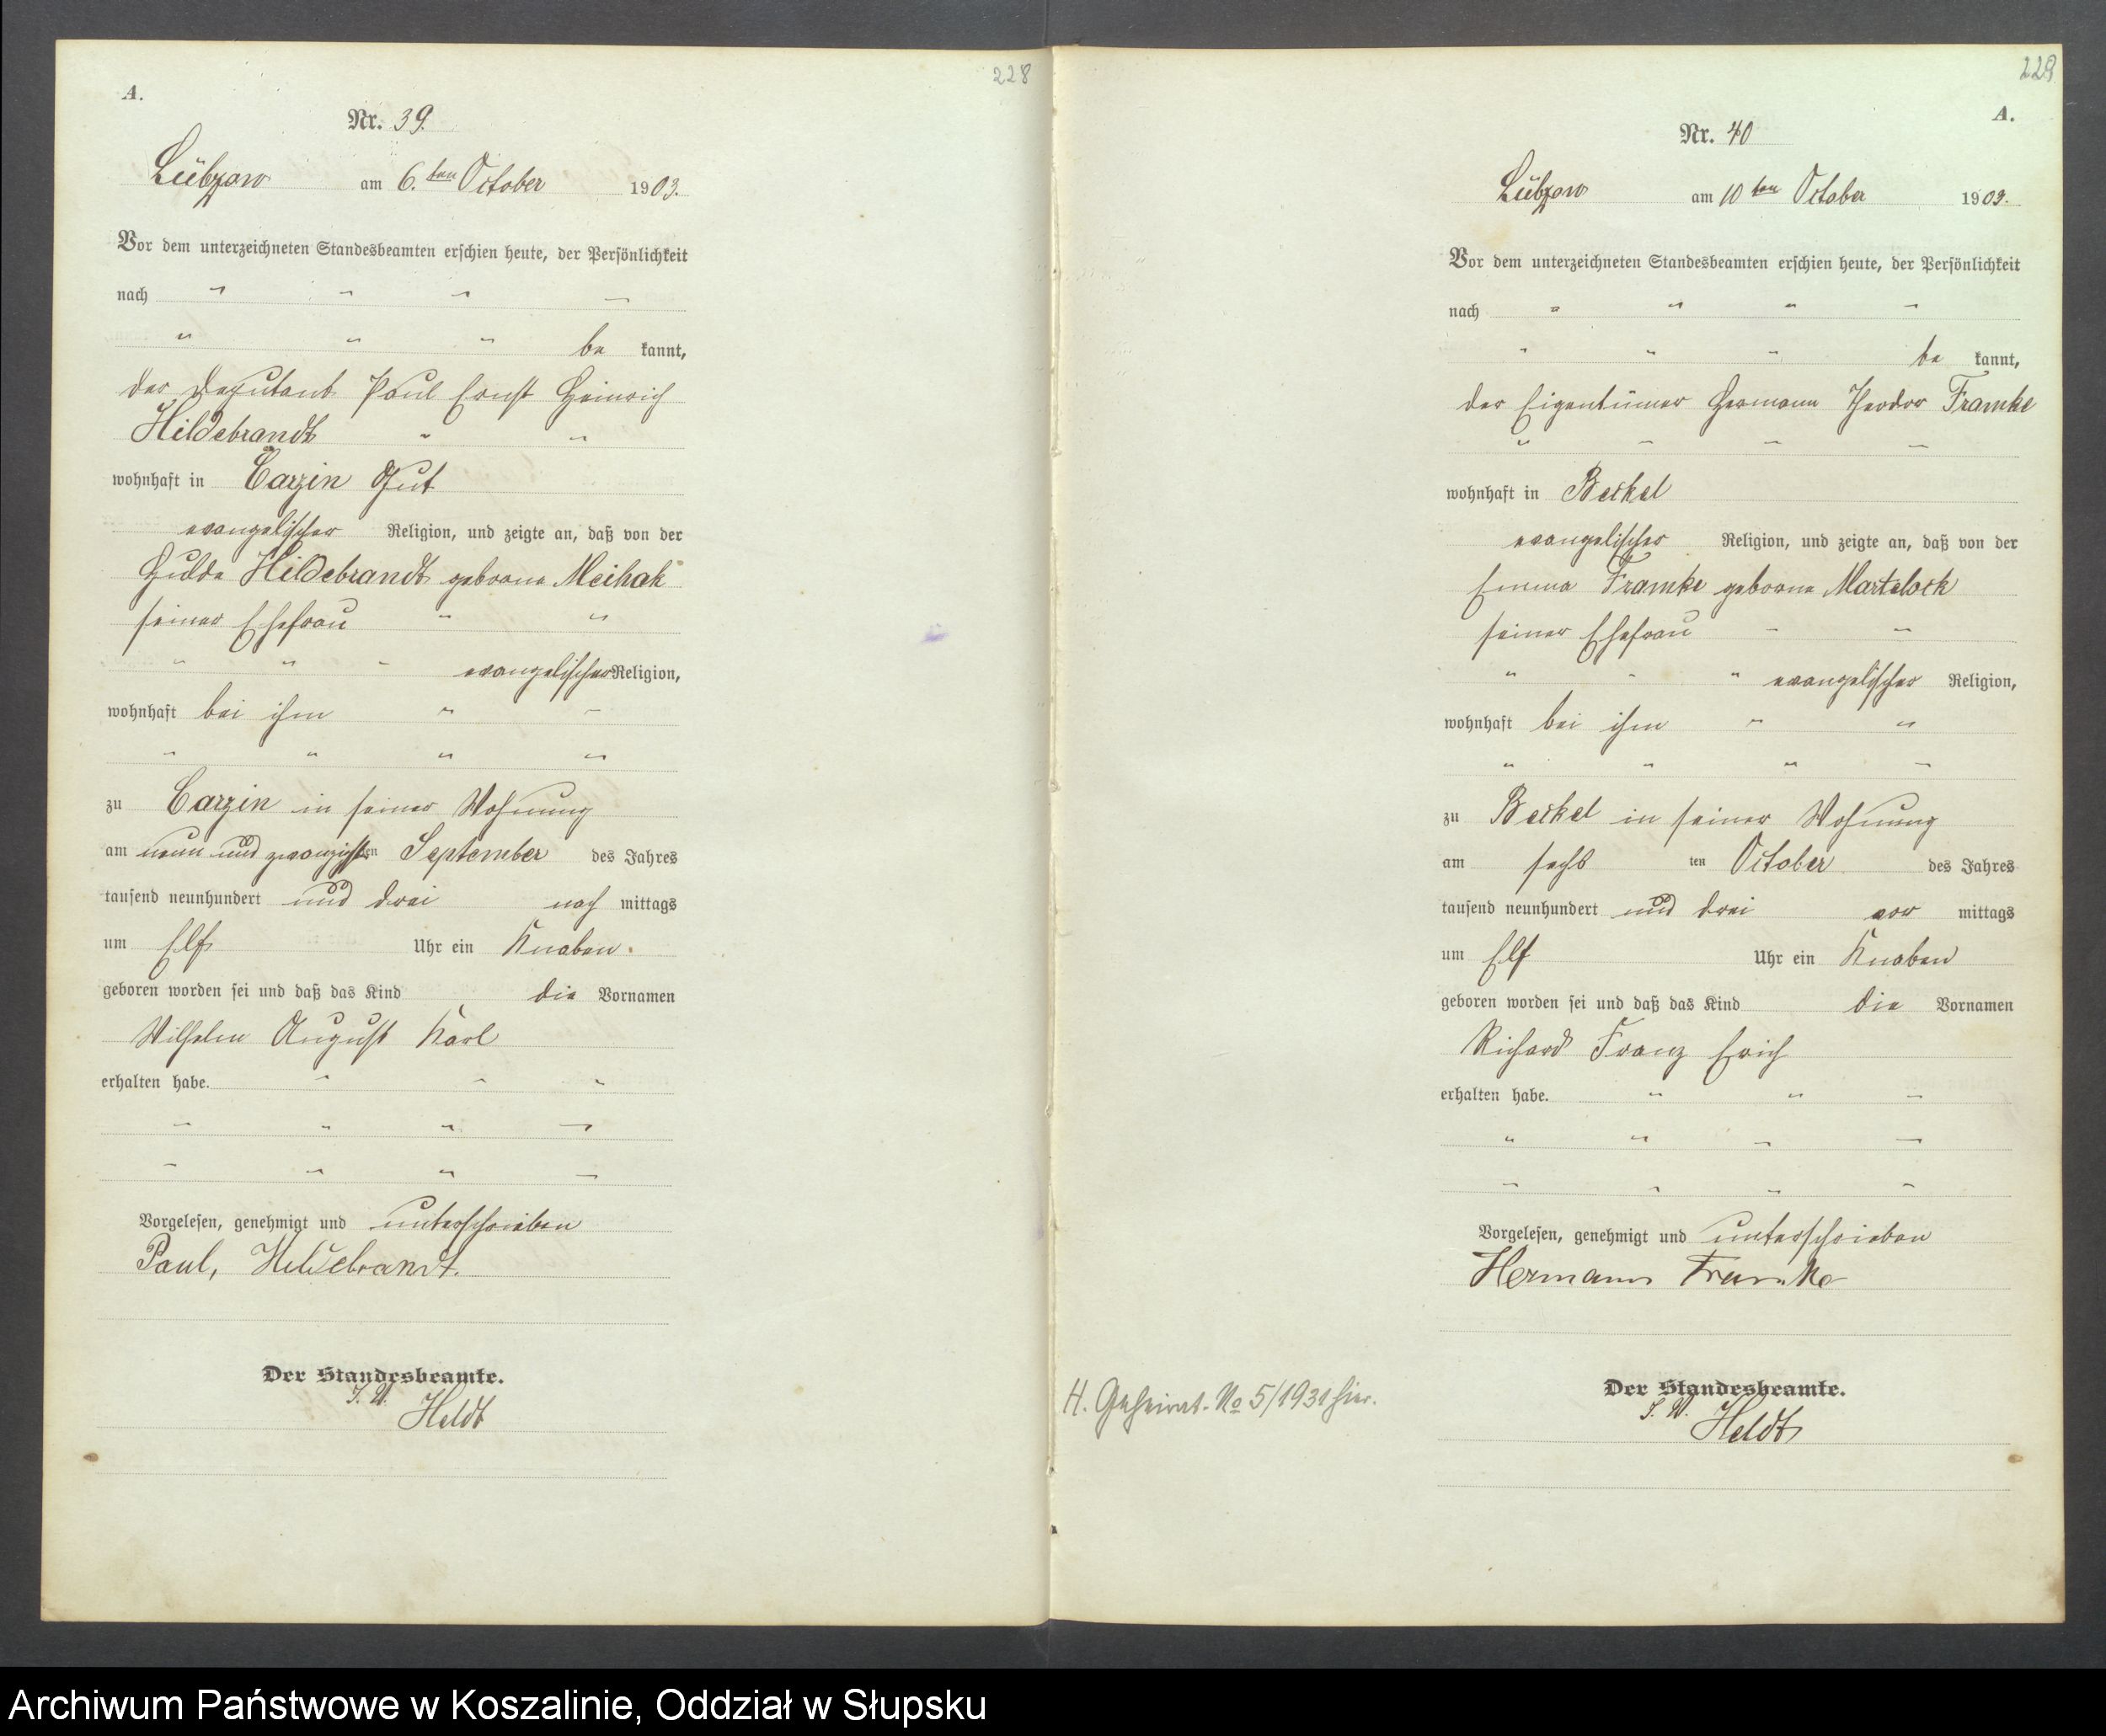 228
A.
Nr. 39.
Lübzow am 6.ten October 1903.
Vor dem unterzeichneten Standesbeamten erschien heute, der Persönlichkeit
nach
be kannt,
der Deputant Paul Ernst Heinrich
Hildebrandt
wohnhaft in Carzin Gut
evangelischer Religion, und zeigte an, daß von der
Hulda Hildebrandt geborene Meihak
seiner Ehefrau
evangelischer Religion,
wohnhaft bei ihm
zu Carzin in seiner Wohnung
am neun und zwanzigsten September des Jahres
tausend neunhundert und drei nach mittags
um Elf Uhr ein Knaben.
geboren worden sei und daß das Kind die Vornamen
Wilhelm August Karl
erhalten habe.
Vorgelesen, genehmigt und unterschrieben
Paul, Hildebrandt.
Der Standesbeamte.
I. V. Heldt
229
A.
Nr. 40
Lübzow am 10ten October 1903.
Vor dem unterzeichneten Standesbeamten erschien heute, der Persönlichkeit
nach
be kannt,
der Eigentümer Hermann Theodor Framke
wohnhaft in Beckel
evangelischer Religion, und zeigte an, daß von der
Emma Framke geborene Martelock
seiner Ehefrau
evangelischer Religion,
wohnhaft bei ihm
zu Beckel in seiner Wohnung
am sechsten October des Jahres
tausend neunhundert und drei vor mittags
um Elf Uhr ein Knaben
geboren worden sei und daß das Kind die Vornamen
Richard Franz Erich
erhalten habe.
Vorgelesen, genehmigt und unterschrieben
Hermann Framke
Der Standesbeamte.
I. V. Heldt
H. Geheirat. No 5/1931 hier.
Archiwum Państwowe w Koszalinie, Oddział w Słupsku